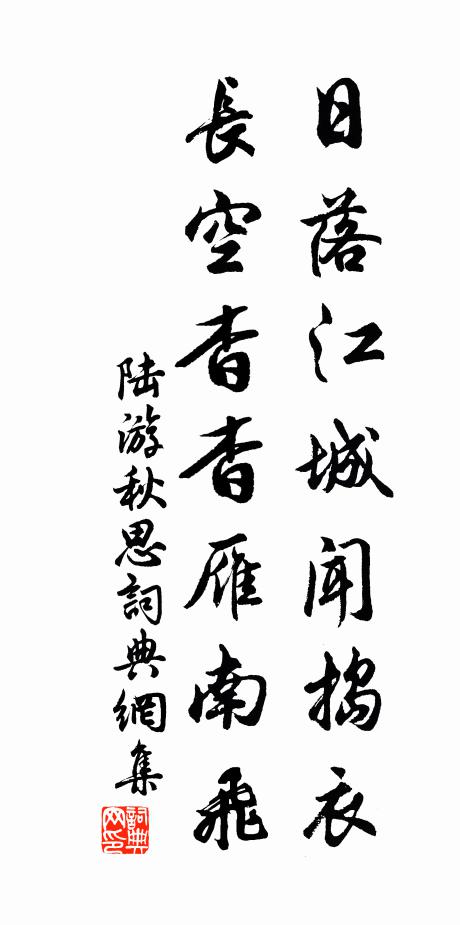 日落江城闻捣衣
長空杳杳雁南飛
陆游秋思詞典網集
詞典网印